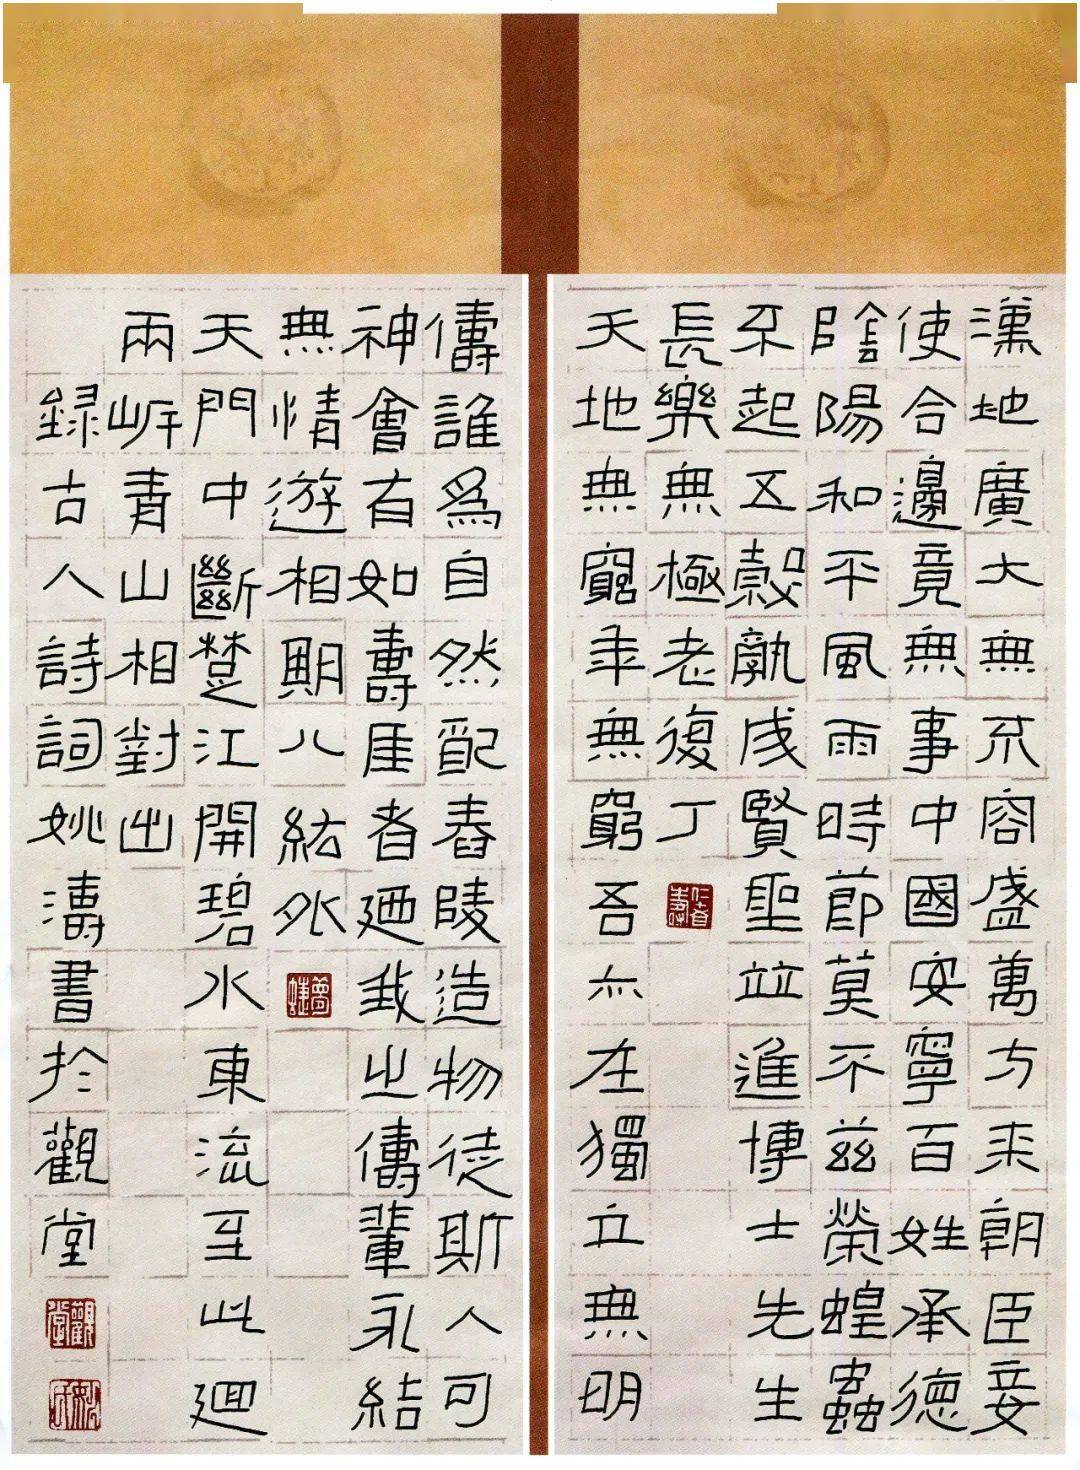 漢地廣大無不容盛萬方来朝臣妾
使合邊竟無事中國安寧百姓承德
陰陽和平風雨時節莫不茲榮蝗蟲
不起五穀孰成賢聖竝進博士先生
長樂無極老復丁
仁者壽
天地無窮年無窮吾亦在獨立無明
儔誰爲自然配春陵造物徒斯人可
神會有如壽厓者廼我之儔輩永結
無情遊相期八紘外
天門中斷楚江開碧水東流至此廻
兩岸青山相對出
録古人詩詞姚濤書於觀堂
觀堂